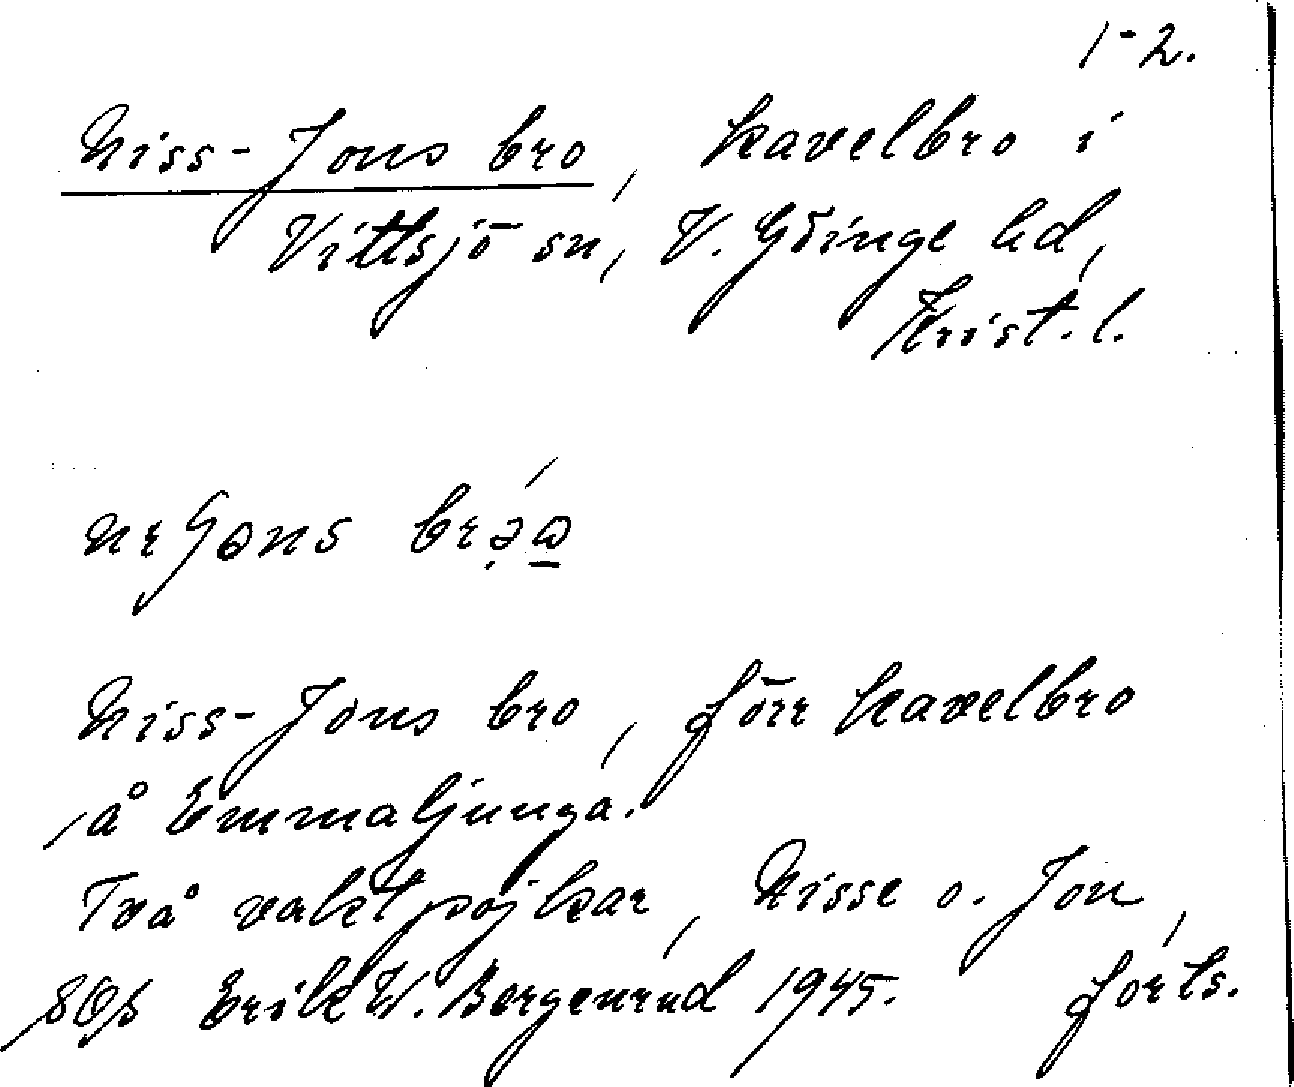 1-2.
Niss-Jons bro, kavelbro i
Vittsjö sn, V. Göinge hd,
Krist. l.
bro
Niss-Jons bro, förr kavelbro
å Emmaljunga.
Två vaktpojkar, Nisse o. Jon,
Erik W. Bergenrud 1945. forts.